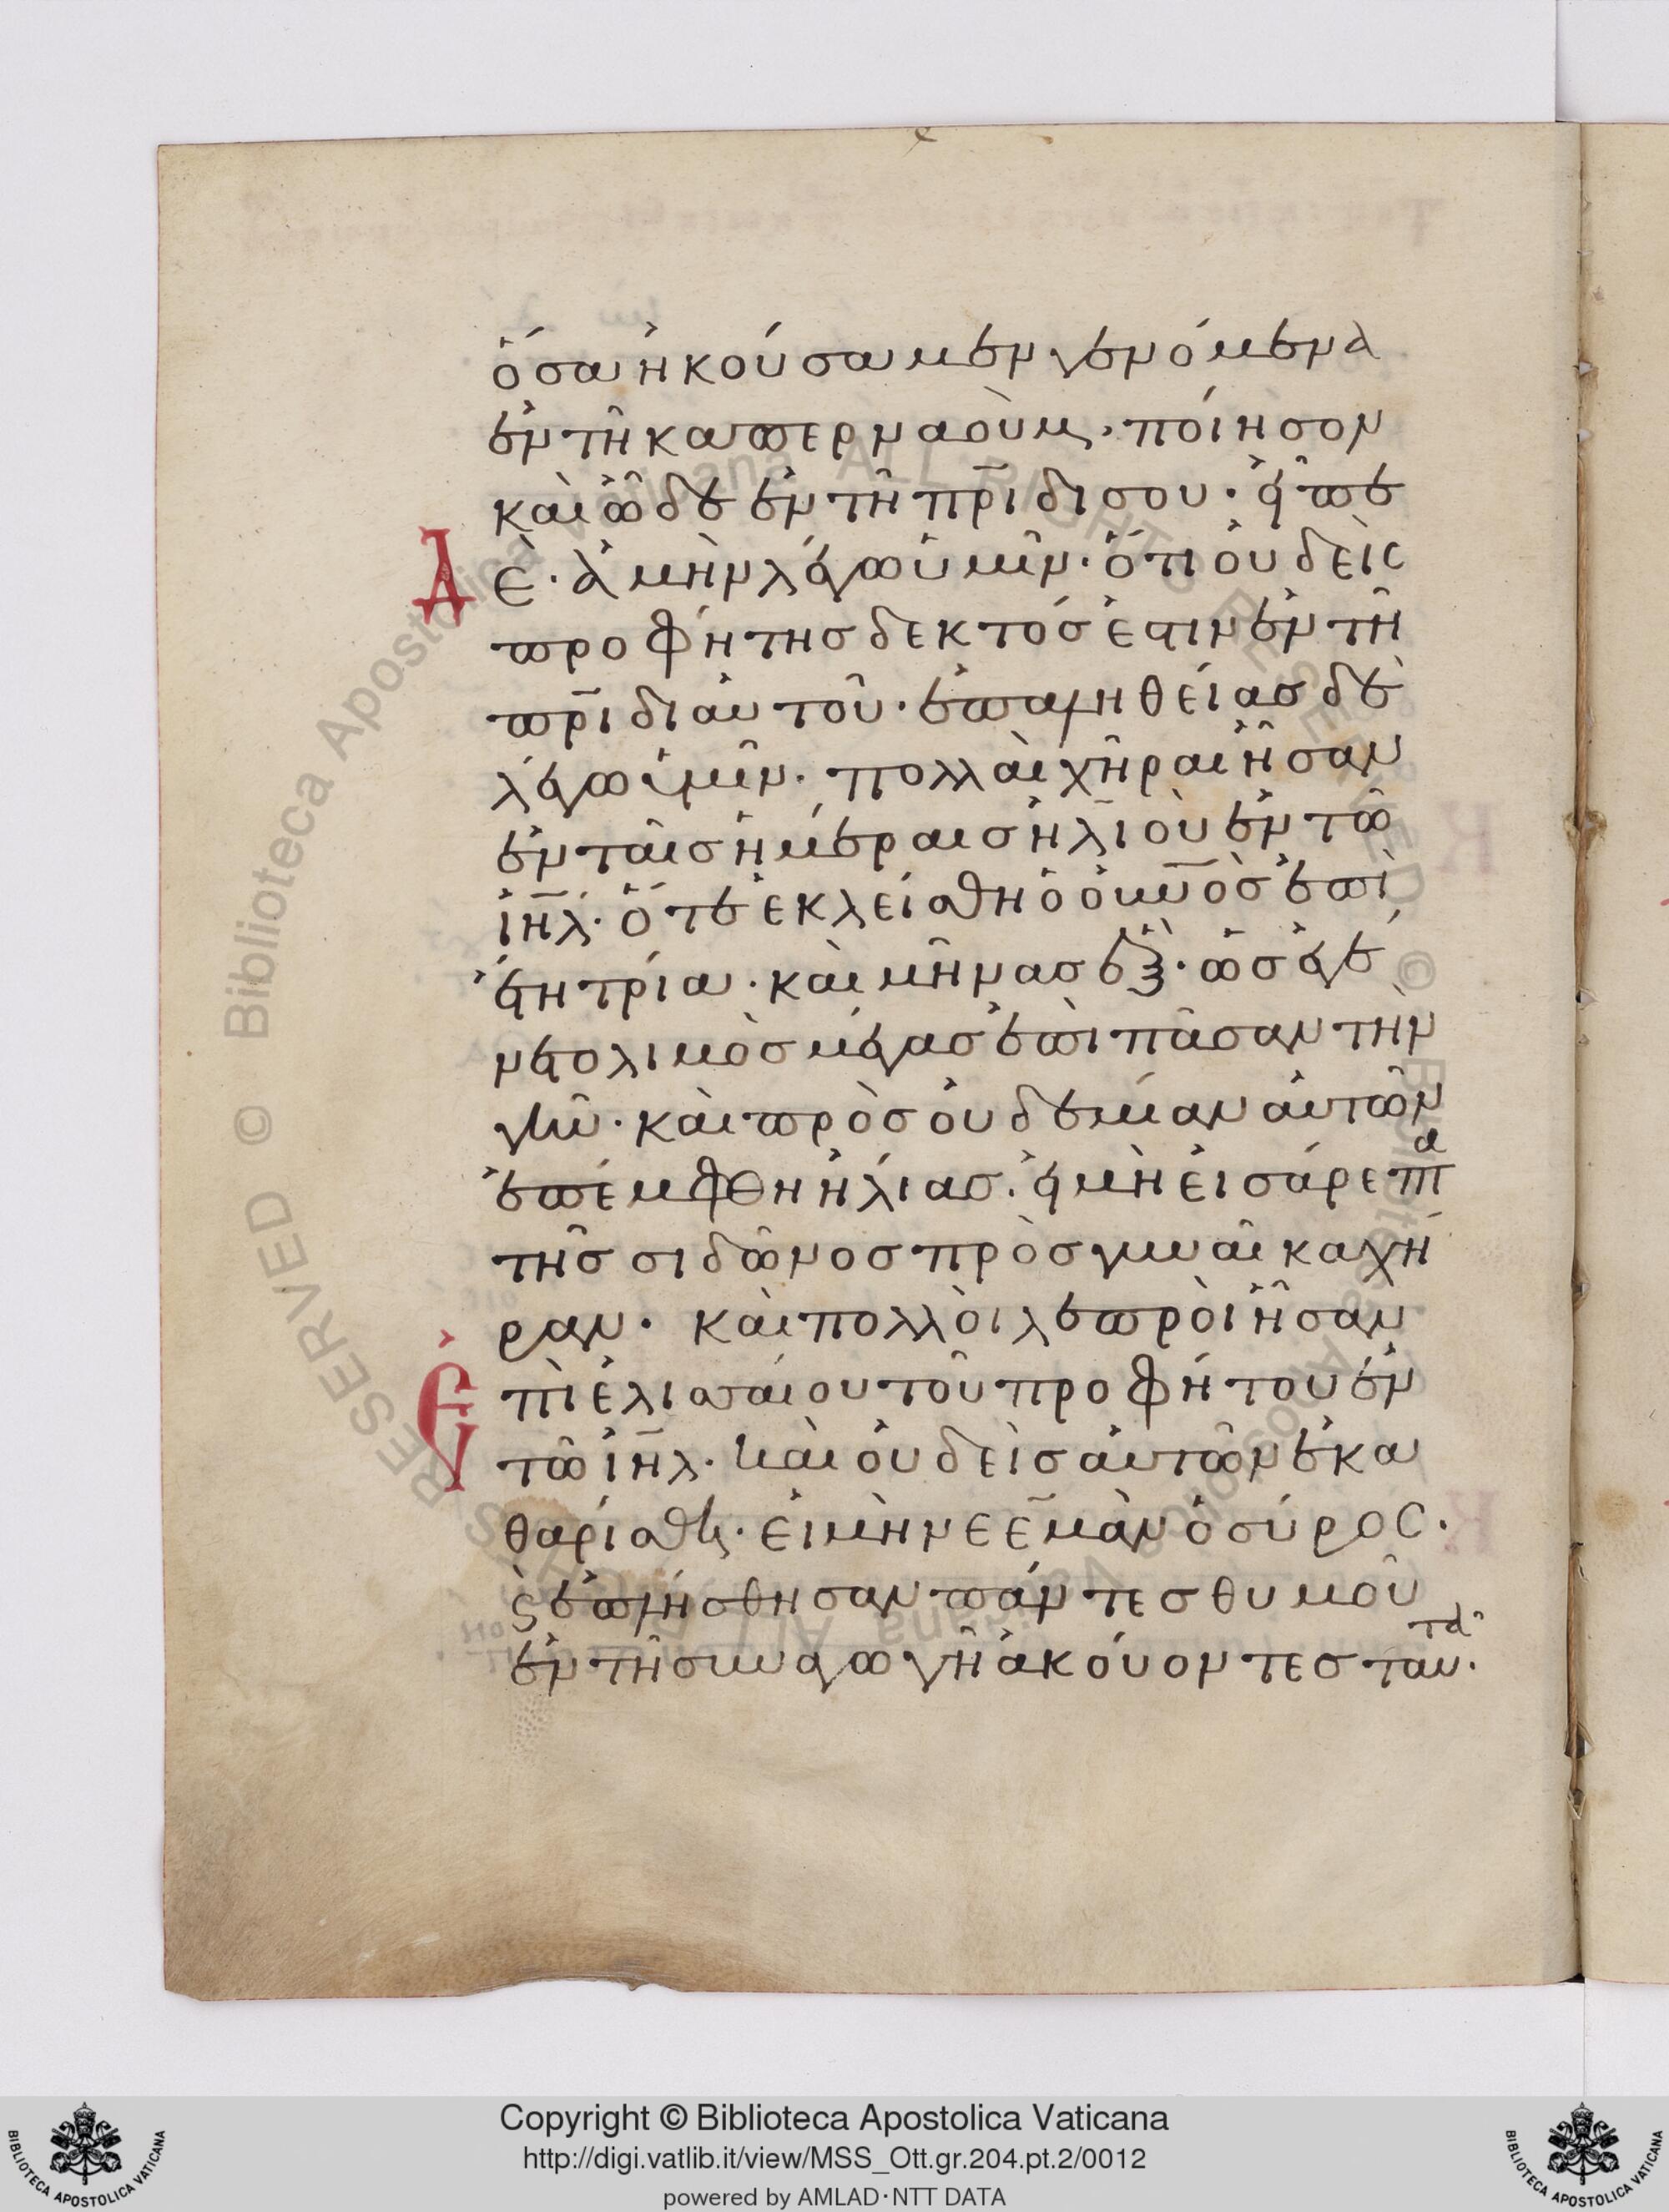 ὅσα ἠκούσαμεν γενόμενα
ἐν τῇ καπερναοὺμ· ποίησον
καὶ ὧδε ἐν τῇ πρ̅ίδι σου· εἶπε
Δ ε· ἀμὴν λέγω ὑμῖν· ὅτι οὐδεὶς
προφήτης δεκτός ἐστιν ἐν τῇ
πρ̅ίδι αὐτοῦ· ἐπ' αληθείας δὲ
λέγω ὑμῖν· πολλαὶ χῆραι ἦσαν
ἐν ταῖς ἡμέραις ἠλιοὺ ἐν τῶ
ἰη̅λ· ὅτε ἐκλείσθη ὁ οὐν̅ος ἐπὶ
ἔτη τρία· καὶ μῆνας ἓξ· ὡς ἐγέ
νετο λιμὸς μέγας ἐπὶ πᾶσαν τὴν
γῆν· καὶ πρὸς οὐδεμίαν αὐτῶν
ἐπέμφθη ἠλίας· εἰ μὴ εἰς σάρεπτα
τῆς σιδῶνος πρὸς γυναῖκα χή
ραν· καὶ πολλοὶ λεπροὶ ἦσαν
Ἐπὶ ἐλισσαίου τοῦ προφήτου ἐν
τῶ ἰη̅λ· καὶ οὐδεὶς αὐτῶν ἐκα
θαρίσθη· εἰ μὴ νεεμὰν ὁ σύρος·
ϛ ἐπλήσθησαν πάντες θυμοῦ
ἐν τῇ συναγωγῇ ἀκούοντες ταῦτα·
Copyright © Biblioteca Apostolica Vaticana
http://digi.vatlib.it/view/MSS_Ott.gr.204.pt.2/0012
powered by AMLAD·NTT DATA